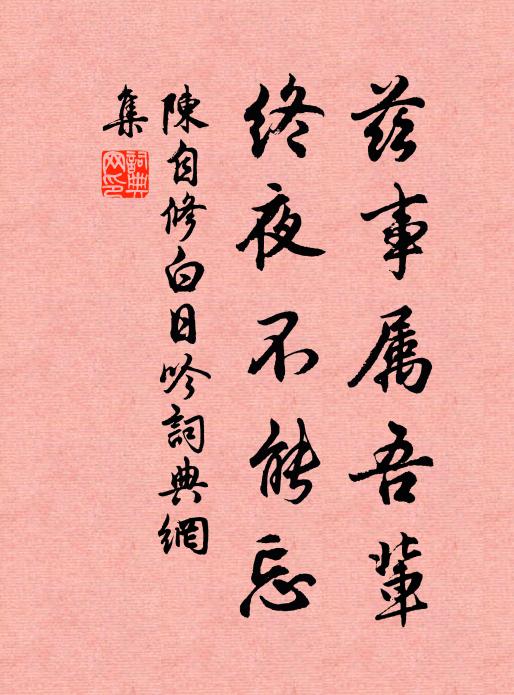 茲事属吾輩
終夜不能忘
陳自修白日吟詞典網
集
詞典
网印